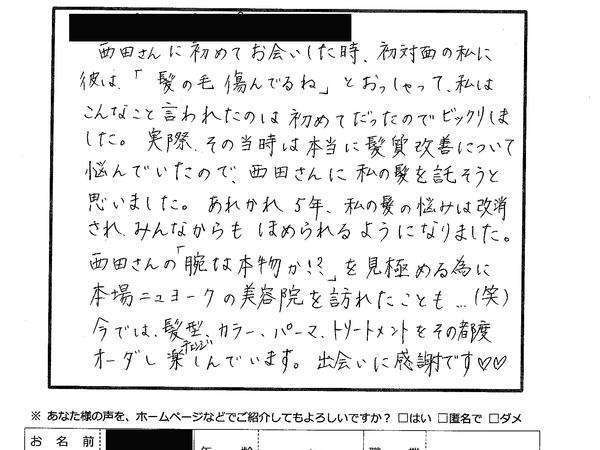 西田さんに初めてお会いした時、初対面の私に
彼は、「髪の毛傷んでるね」とおっしゃって、私は
こんなこと言われたのは初めてだったのでビックリしま
した。実際、その当時は本当に髪質改善について
悩んでいたので、西田さんに私の髪を託そうと
思いました。あれかれ5年、私の髪の悩みは改消
され、みんなからもほめられるようになりました。
西田さんの「腕は本物か!?」を見極める為に
本場ニューヨークの美容院を訪れたことも…(笑)
今では、髪型、カラー、パーマ、トリートメントをその都度
オーダーし楽しんでいます。出会いに感謝です♡♡
※ あなた様の声を、ホームページなどでご紹介してもよろしいですか? □はい □匿名で □ダメ
お名前
年齢
職業